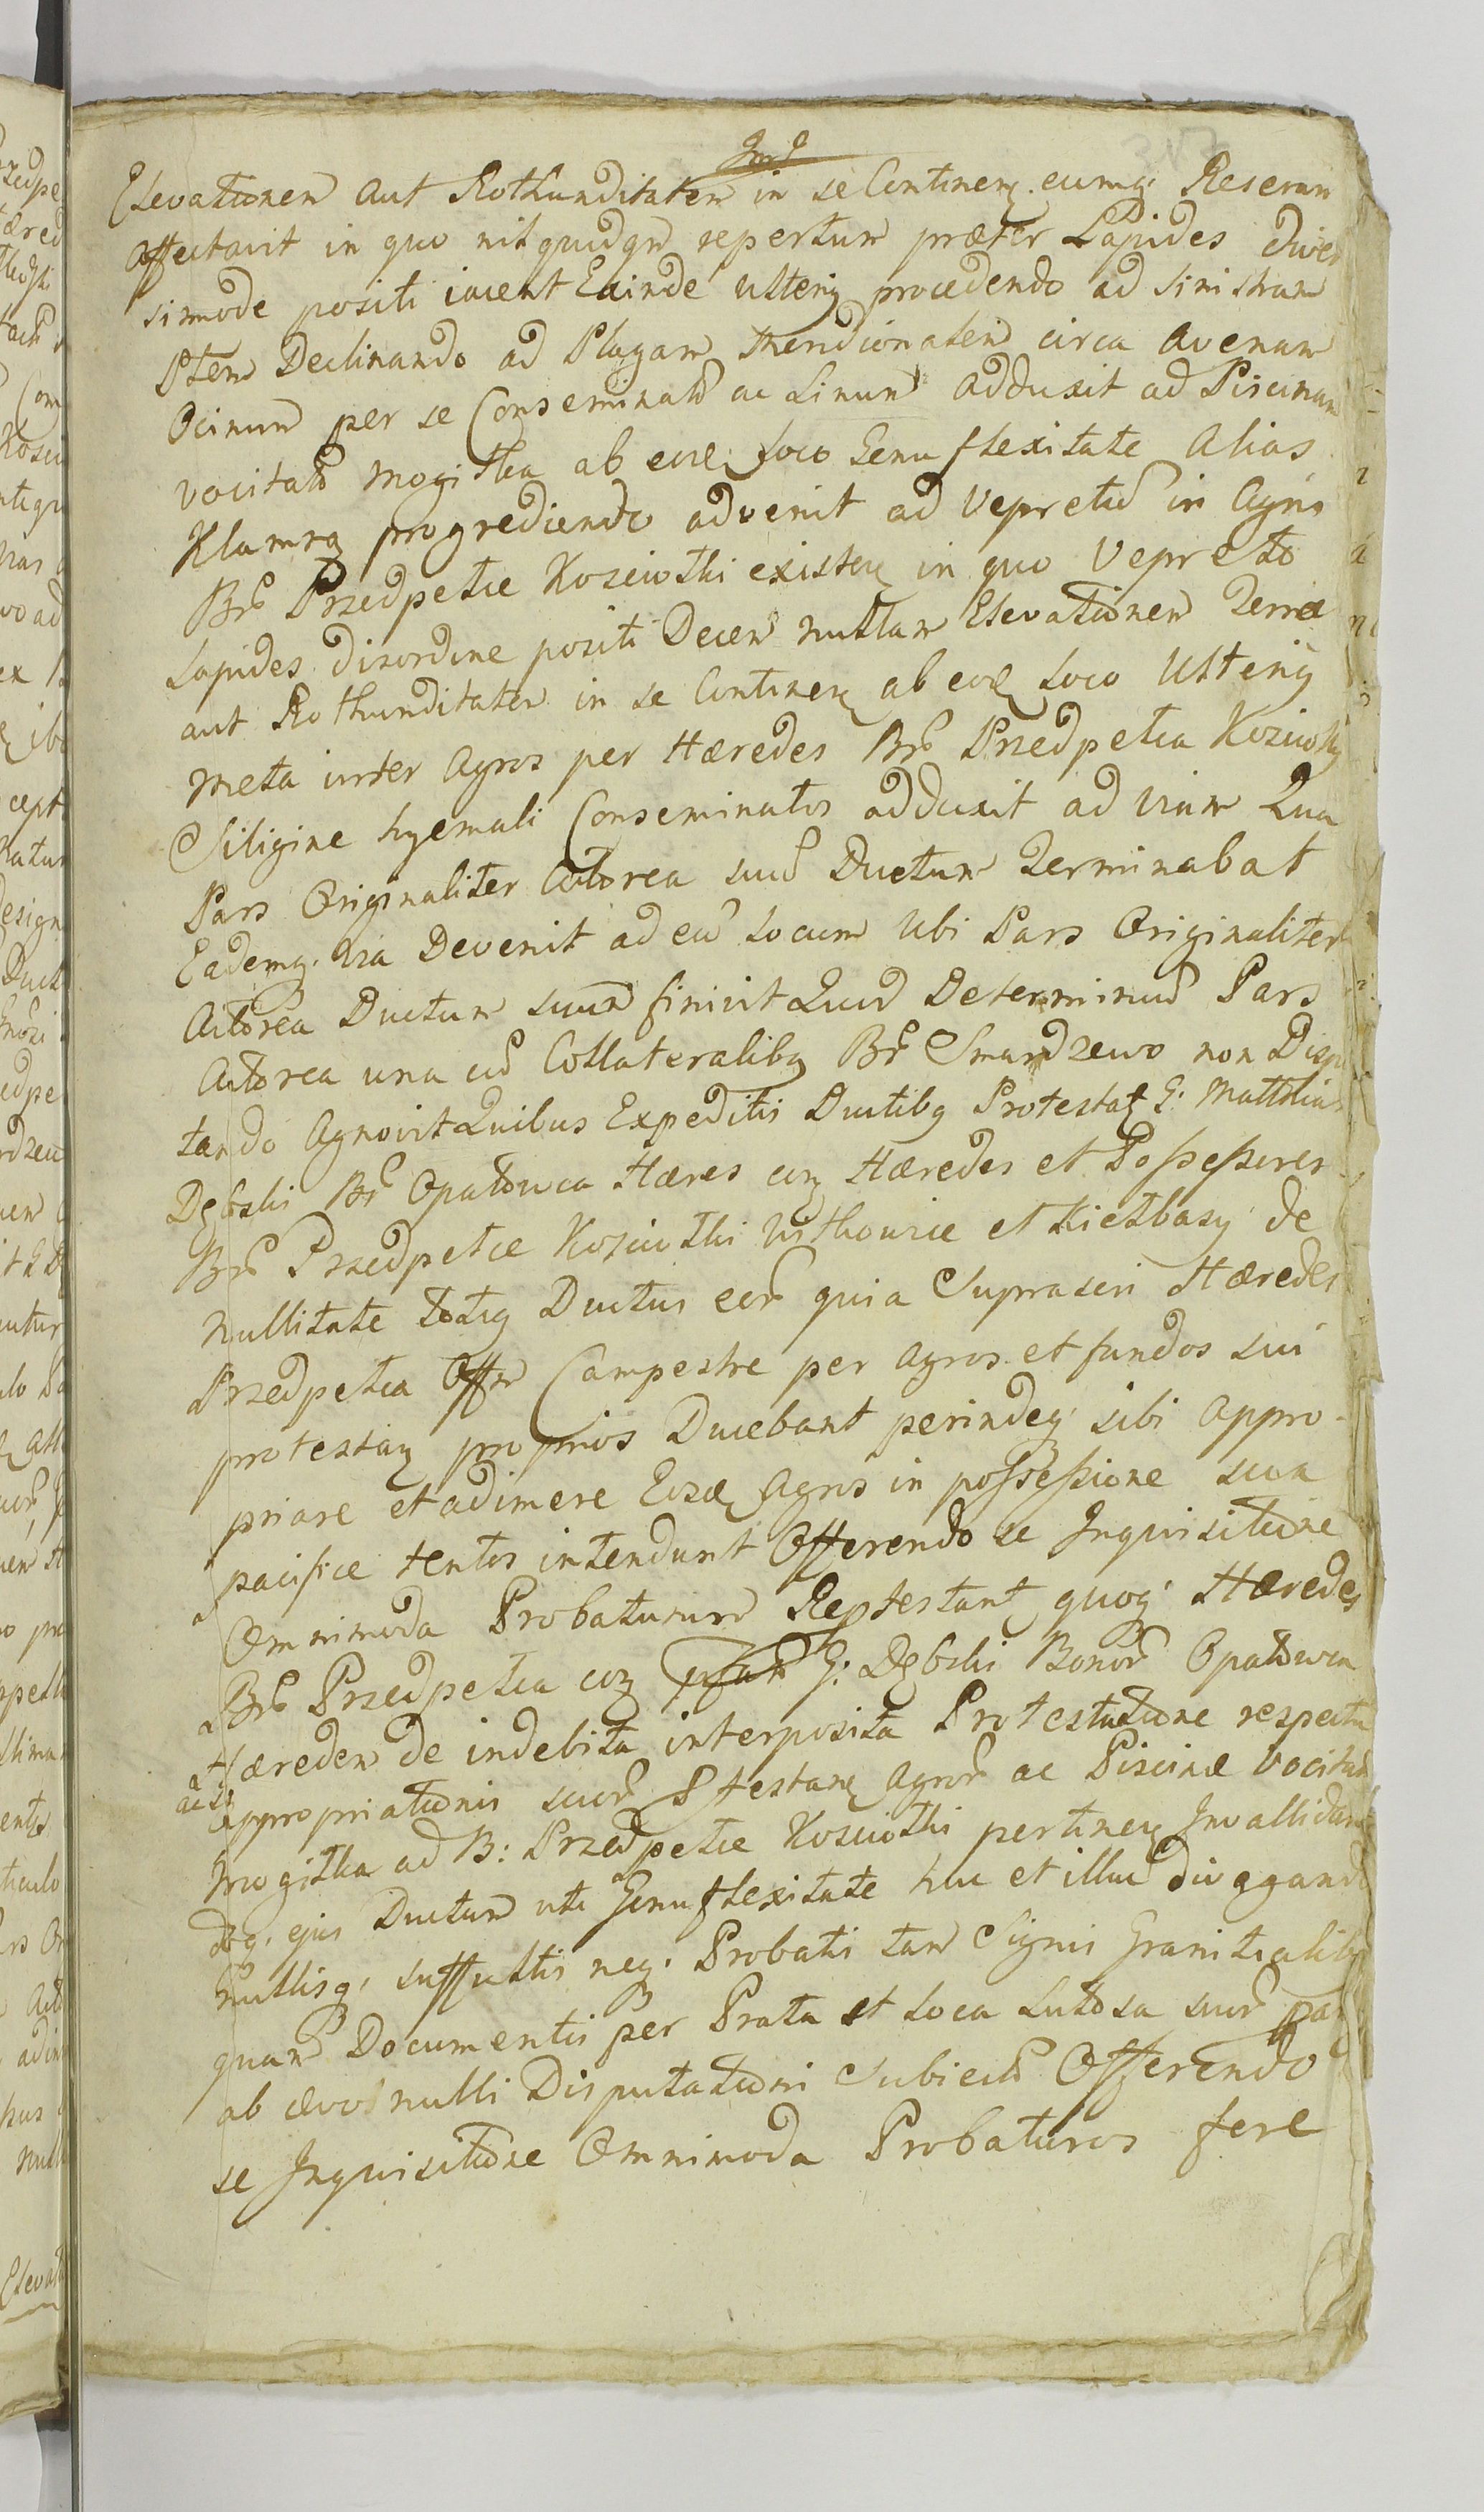 Elevationem aut Rothunditatem in se Continen. eumq. Reseram
affectavit in quo nil quidqm repertum præter Lapides diver
simode positi iacent Exinde Ulterig procedendo ad sinistram
Ptem Declinando ad Plagam Meridionalem circa Avenam
Ocinum per se Conseminatu ac Linum adduxit ad Piscinam
vocitatu Mogiłka ab eod. loco Genuflexitate Alias
Klamrą progrediendo advenit ad Vepretu in Agris
Brū Przedpełcie Kosciołki existen. in quo Vepreto
Lapides disordine positi Decem nullam Elevationem Terræ
aut Rothunditatem in se Continen. ab eod. loco Ulterig
Meta inter Agros per Hæredes Brū Przedpełcia Kosciołki
Siligine hyemali Conseminatos adduxit ad viam Qua
Pars Originaliter Actorea suu Ductum Terminabat
Eademq. via Devenit ad eu locum Ubi Pars Originaliter
Actorea Ductum suum finivit Quod Determinu Pars
Actorea una cu Collateralibq Br Smardzewo non Dispu
tando Agnovit Quibus Expeditis Ductibq Protestat. G: Matthias
Dębski Br Opatowca Hæres con. Hæredes et Possessores
Brū Przedpełcie Kosciołki Witkowice et Kiełbasy de
Nullitate totiq Ductus eor quia Suprascri Hæredes
Przedpełcia Offm Campestre per Agros et fundos sui
protestan. proprios Ducebant perindeq. sibi Appro-
priare et adimere Eosd. Agros in possessione sua
pacifice tentos intendunt Offerendo se Inquisitione
Omnimoda Probaturum Reptestant. quoq. Hæredes
Brū Przedpełcia con. G: Dębski Bonor Opatowca
Hæredem de indebita interposita Protestatione respectu
appropriationis suor Ptestan. Agror ac Piscinæ vocitat
Mogiłka ad B: Przedpełcie Kosciołki pertinen. Invallidan
doq. ejus Ductum uti Genuflexitate huc et illuc divagando
Nullisq. suffultis neq. Probatis tam Signis Granicialibq
quam Documentis per Prata et loca lutosa suor par
ab ævo nulli Disputationi Subiectu Offerendo
se Inquisitione Omnimoda Probaturos fere